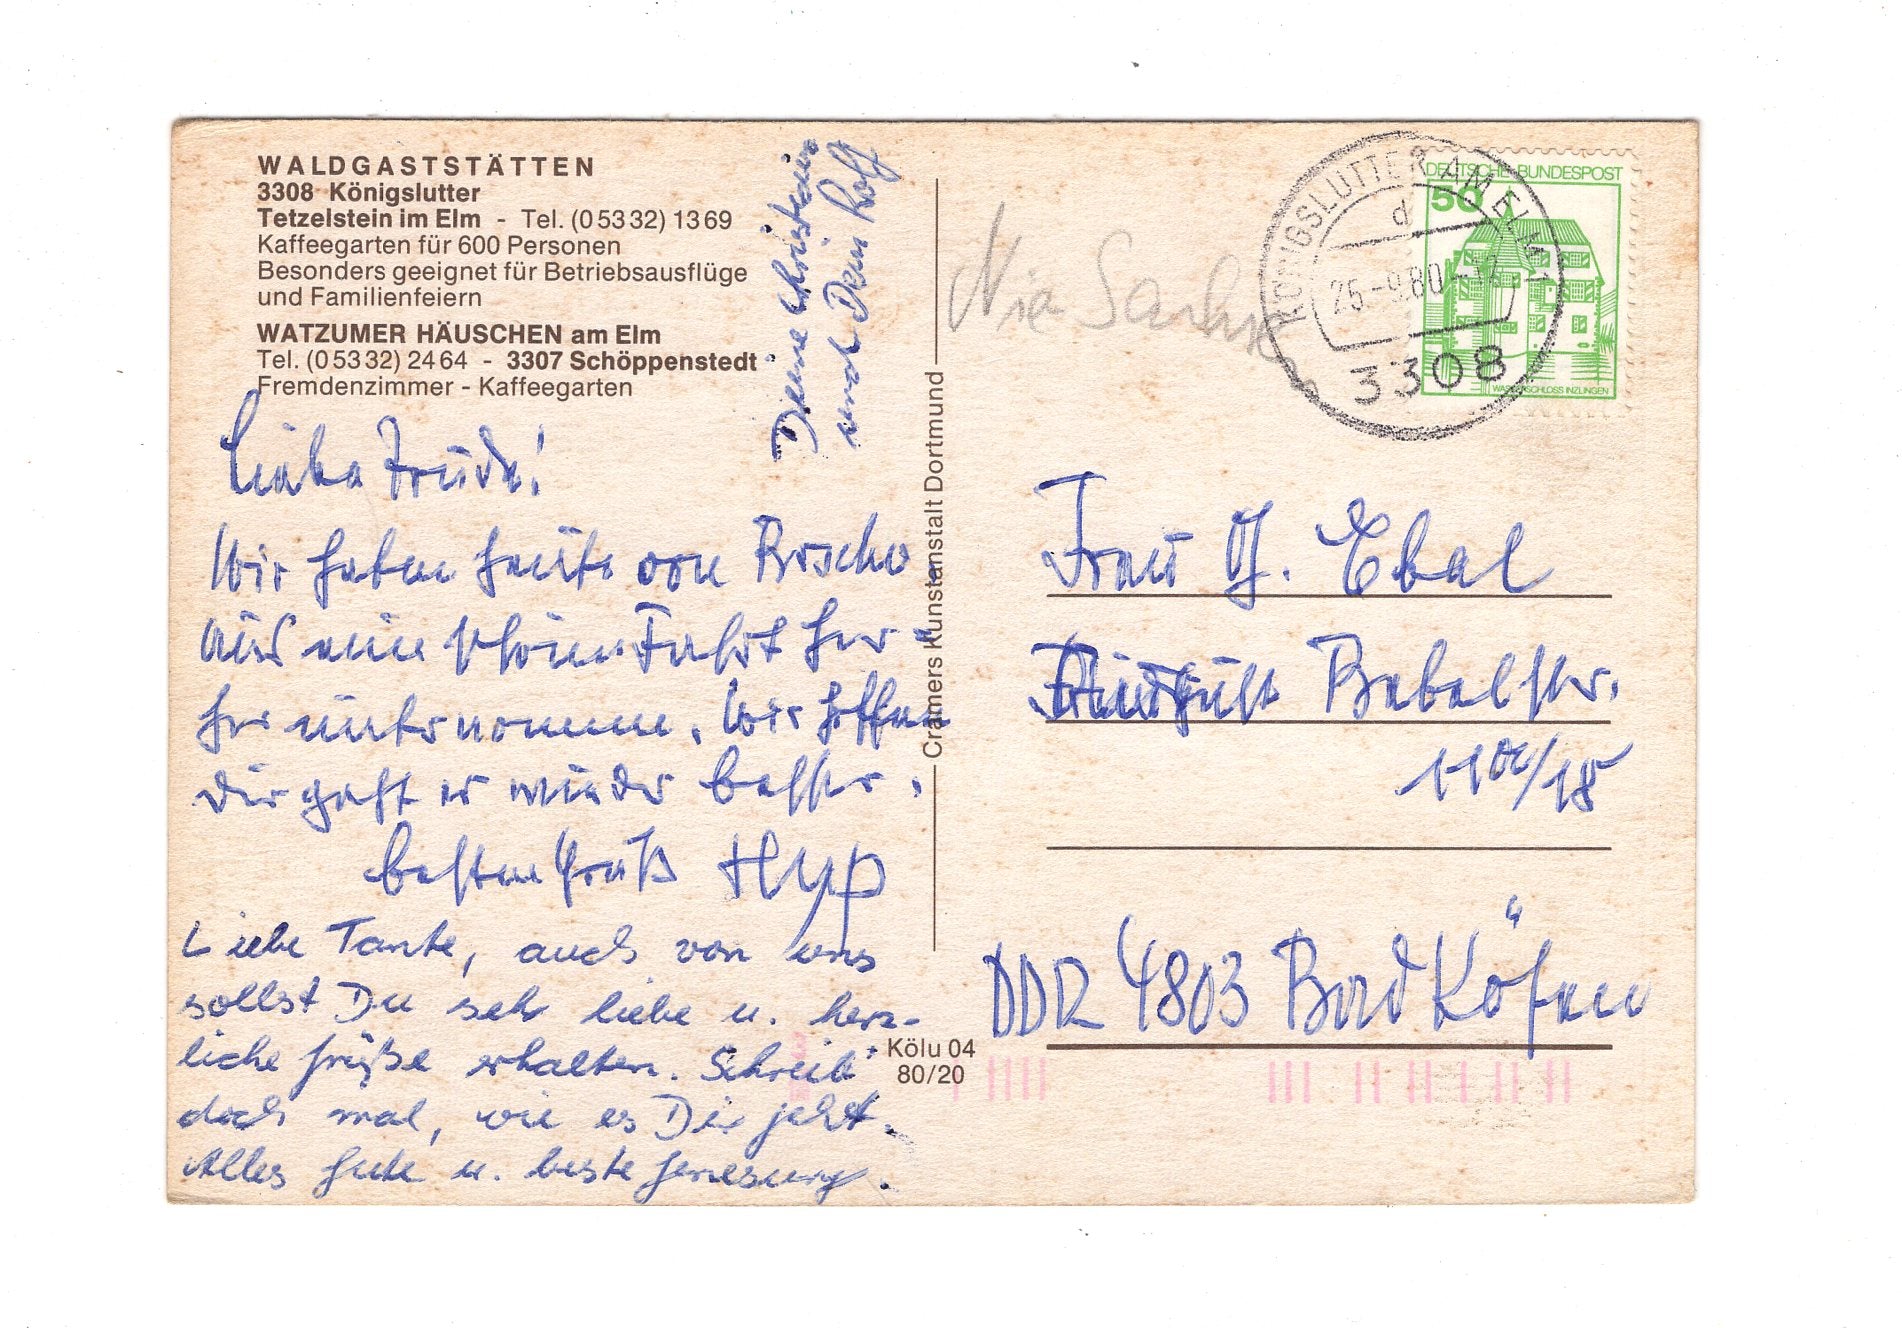 WALDGASTSTÄTTEN
3308 Königslutter
Tetzelstein im Elm - Tel. (0 53 32) 13 69
Kaffeegarten für 600 Personen
Besonders geeignet für Betriebsausflüge
und Familienfeiern
WATZUMER HÄUSCHEN am Elm
Tel. (0 53 32) 24 64 - 3307 Schöppenstedt
Fremdenzimmer - Kaffeegarten
Liebe Trude!
Wir haben heute von
aus eine schöne Fahrt hier-
her unternommen. Wir hoffen
Dir geht es wieder besser.
besten Gruß
Liebe Tante, auch von uns
sollst Du sehr liebe u. herz-
liche Grüße erhalten. Schreib'
doch mal, wie es Dir jeht.
Alles Gute u. beste Genesung.
Deine Christiane
und Dein Rolf
Cramers Kunstanstalt Dortmund
Kölu 04
80/20
DEUTSCHE BUNDESPOST
50
WASSERSCHLOSS INZLINGEN
KÖNIGSLUTTER AM ELM 1
d
25.-9.80
3308
Frau G. Ebel
August Bebelstr.
11 /18
DDR 4803 Bad Kösen